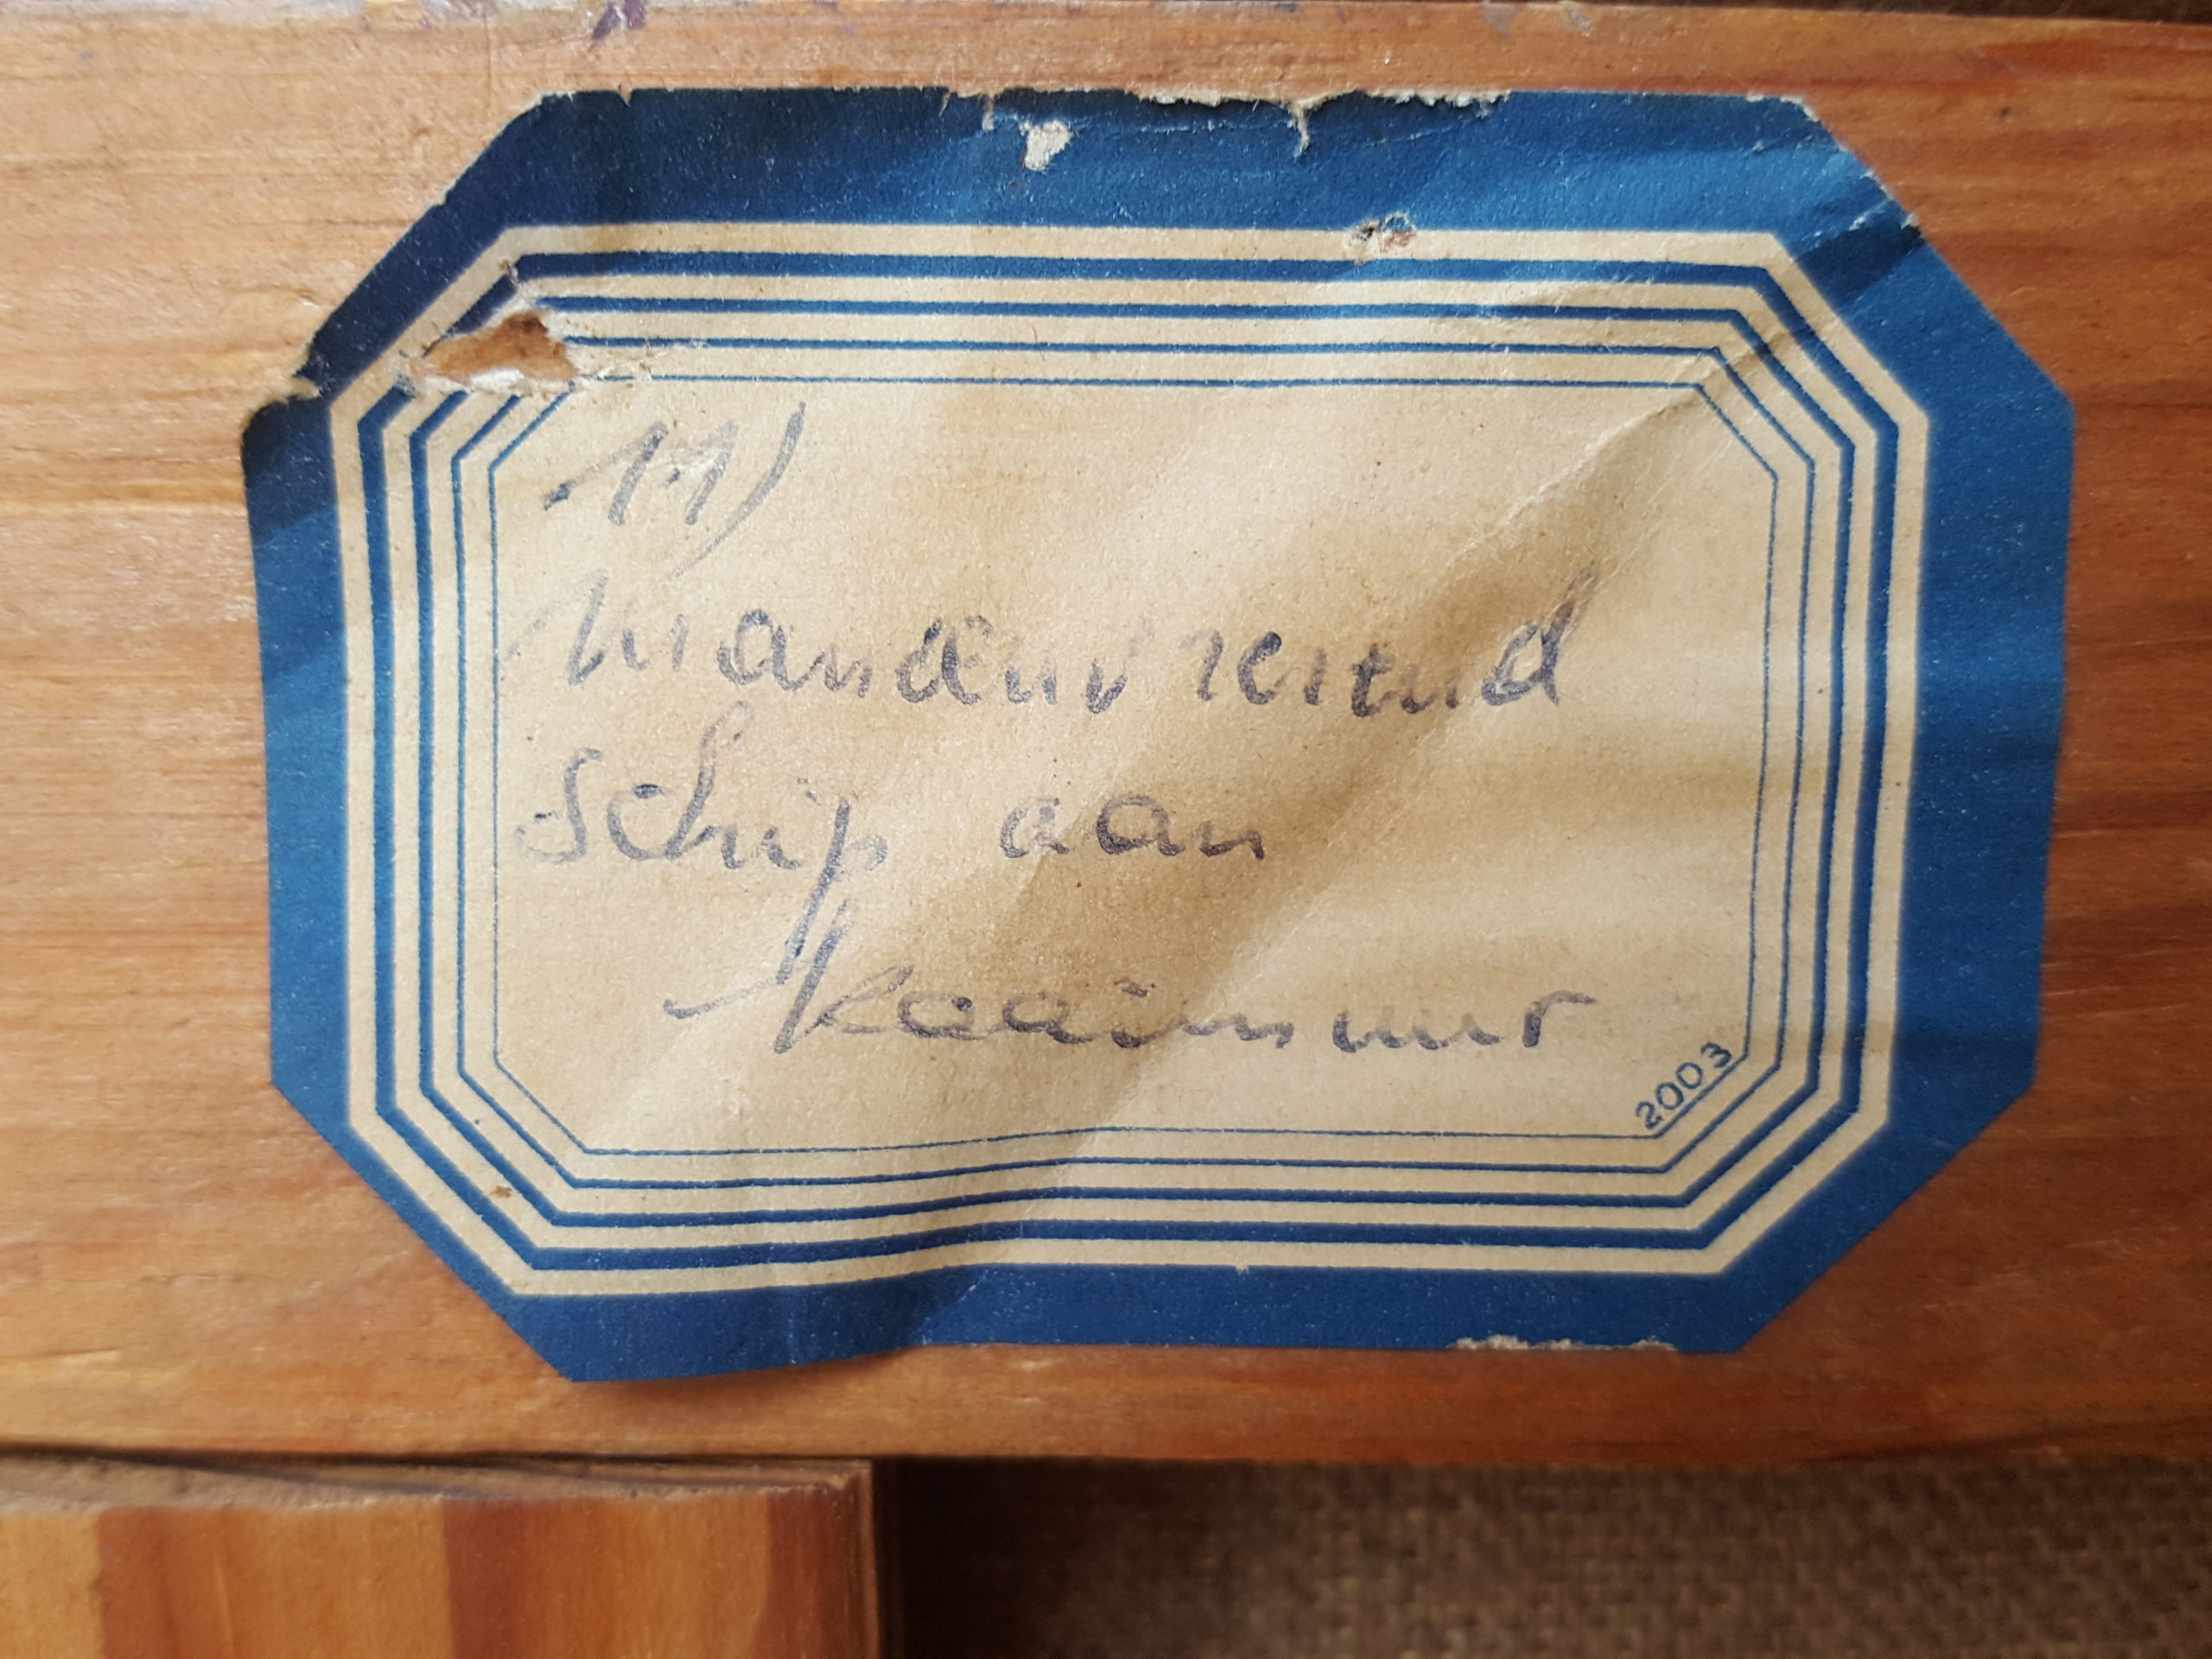 11)
Manœuvrerend
Schip aan
Kaaimuur
2003